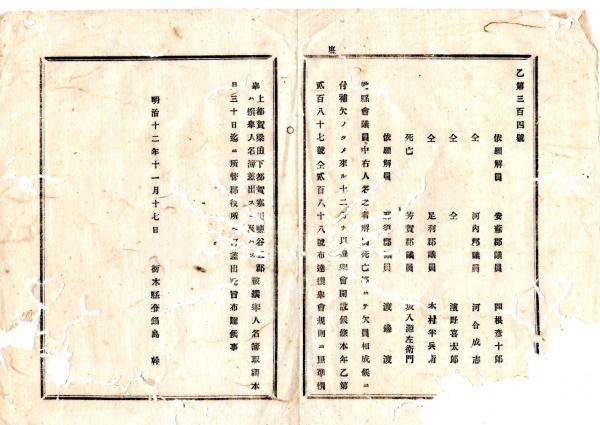 乙第三百四號
依願解員 安蘇郡議員 四根彥十郎
仝 河內郡議員 河合成志
仝 仝 濱野喜太郎
仝 足利郡議員 木村半兵衛
死亡 芳賀郡議員 坂入源左衛門
依願解員 郡議員 渡邊渡
縣會議員中右人名之者解職死亡等ニテ欠員相成候ニ
付補欠ノタメ來ル十二月ヲ以選擧會開設候條本年乙第
貳百八十七號仝貳百八十八號布達撰擧會規則ニ照準撰
擧上都賀梁田下都賀寒川鹽谷郡被撰擧人名簿取調本
ハ撰擧人名簿差出スニ及ハス
月三十日迄ニ所管郡役所ヘ差出此旨布達候事
明治十二年十一月十七日 栃木縣令鍋島幹